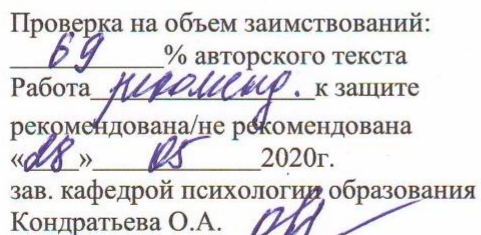 Проверка на объем заимствований:
69 % авторского текста
Работа рекоменд. к защите
рекомендована/не рекомендована
«28» 05 2020г.
зав. кафедрой психологии образования
Кондратьева О.А.